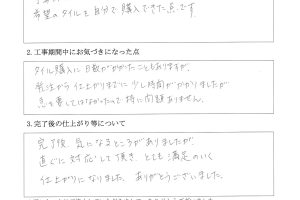 希望のタイルを自分で購入できた点です。
2. 工事期間中にお気づきになった点
タイル購入に日数がかかったこともありますが、
発注から仕上がりまでに少し時間がかかりましたが
急を要してはなかったので特に問題ありません。
3. 完了後の仕上がり等について
完了後、気になるところがありましたが、
直ぐに対応して頂き、とても満足のいく
仕上がりになりました。ありがとうございました。